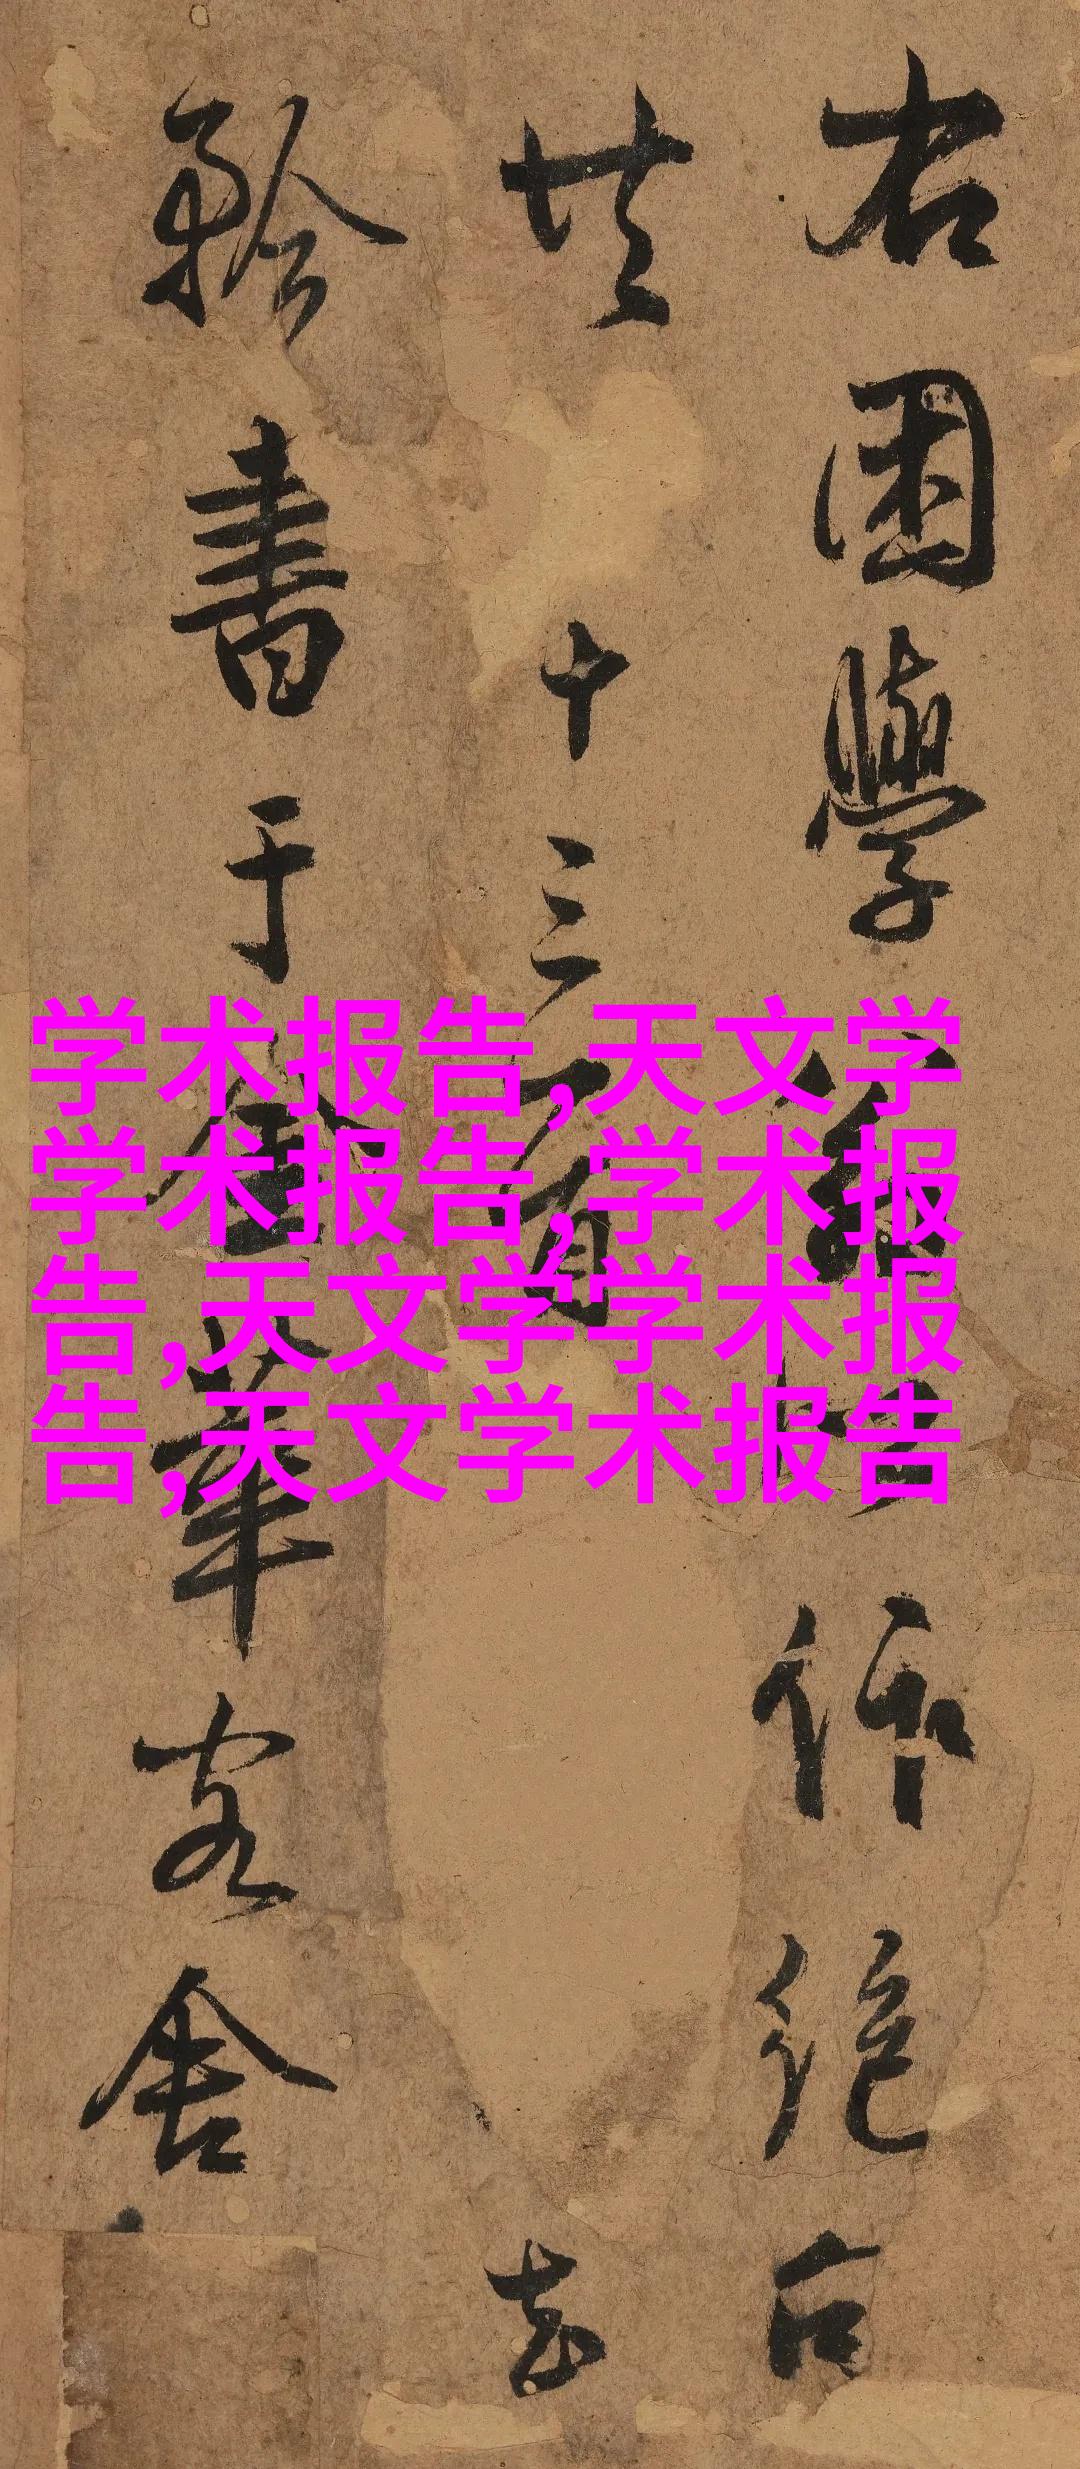 右困學作絕句
共十三首
書于金華客舍
学术报告,天文学
学术报告,学术报
告,天文学学术报
告,天文学术报告